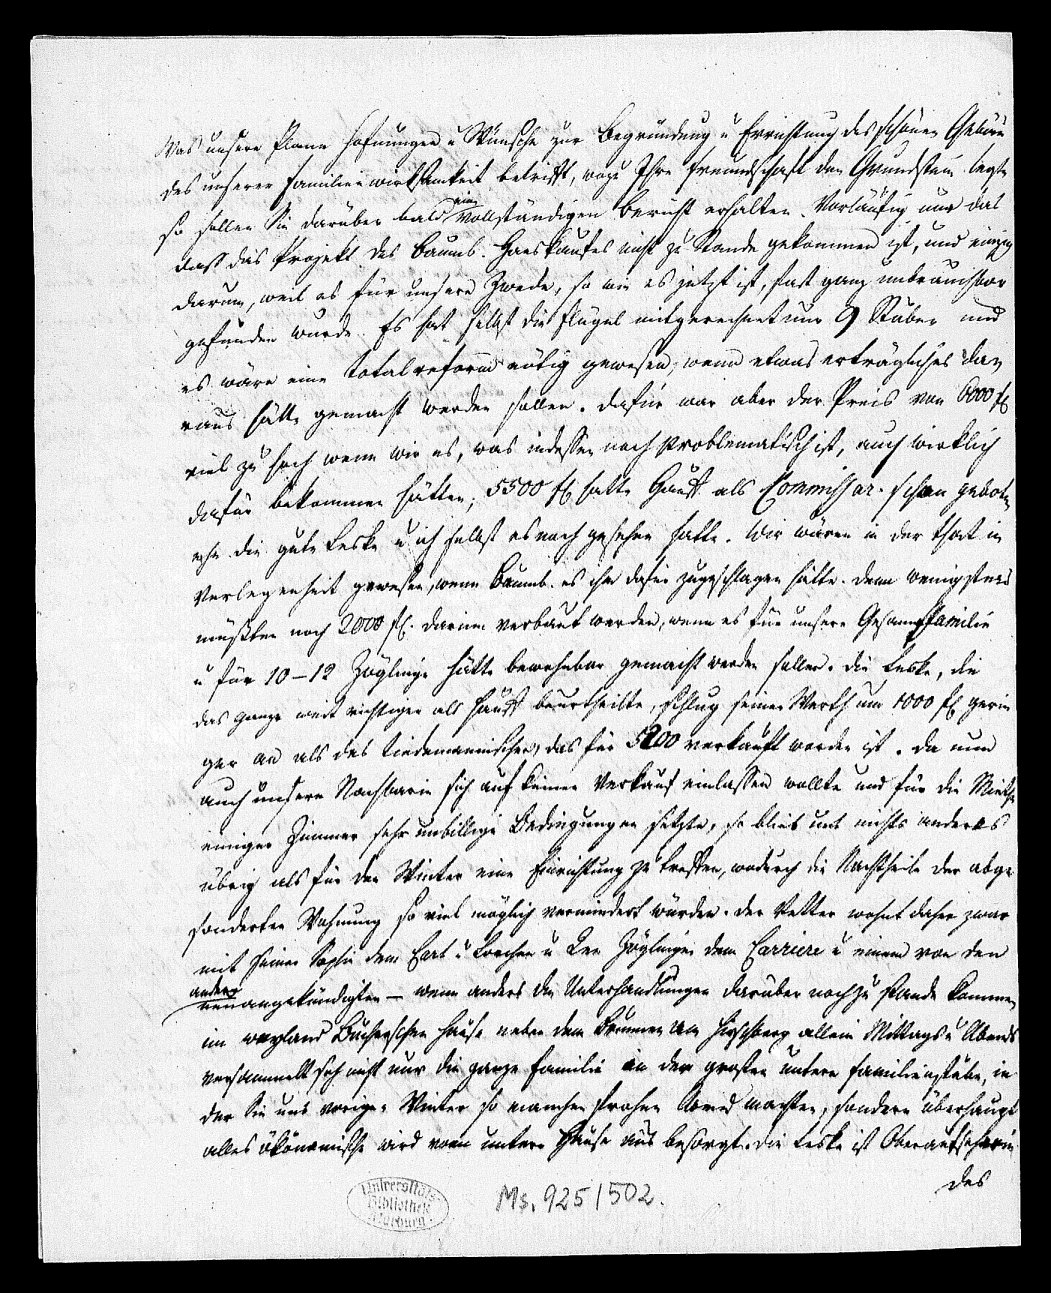 Was unsere Plane Hofnungen u Wünsche zur Begründung u Errichtung des schönen Gebäu
des unserer Familienwirksamkeit betrifft, wozu Ihre Freundschaft den Grundstein legte
so sollen Sie darüber bald einen vollständigen Bericht erhalten. Vorläufig nur das
daß das Projekt des Baumb. Hauskaufes nicht zu Stande gekommen ist, und einzig
darum, weil es für unsere Zwecke, so wie es jetzt ist, fast ganz unbrauchbar
gefunden wurde. Es hat selbst die Flügel mitgerechnet nur 9 Stuben und
es wäre eine Totalreform nötig gewesen, wenn etwas erträgliches da
raus hätte gemacht werden sollen. Dafür war aber der Preis von 6000 fl
viel zu hoch wenn wir es, was indessen noch problematisch ist, auch wirklich
dafür bekommen hätten; 5500 fl hatte Hauß als Commissar. schon geboten
ehe die gute Leske u ich selbst es noch gesehen hatte. Wir wären in der That in
Verlegenheit gewesen, wenn Baumb. es ihm dafür zugeschlagen hätte. Denn wenigstens
müßten noch 2000 fl. darinn verbaut werden, wenn es für unsere Gesammtfamilie
u für 10–12 Zöglinge hätte bewohnbar gemacht werden sollen. Die Leske, die
das Ganze weit richtiger als Hauß beurtheilte, schlug seinen Werth um 1000 fl gerin
ger an als das Tiedemannischen, das für 5200 verkauft worden ist. Da nun
auch unsere Nachbarin sich auf keinen Verkauf einlassen wollte und für die Miethe
einiger Zimmer sehr unbillige Bedingungen setzte, so blieb uns nichts anderes
übrig als für den Winter eine Einrichtung zu treffen, wodurch die Nachtheile der abge
sonderten Wohnung so viel möglich vermindert würden. Der Vetter wohnt daher zwar
mit seiner Sophie dem Carl u Lorchen u den Zöglingen dem Carriere u einem von den
andern
neuangekündigten – wenn anders die Unterhandlungen darüber noch zu Stande kommen
im weyland Bucherschen Hause neben dem Brunnen am Hirschberg allein Mittags u Abends
versammelt sich nicht nur die ganze Familie in der großen untern Familienstube, in
der Sie uns vorigen Winter so manchen frohen Abend machten, sondern überhaupt
alles ökonomische wird vom untern Hause aus besorgt. Die Leske ist Oberaufseherin
des
Universitäts-
Bibliothek
Marburg
Ms. 925/502.